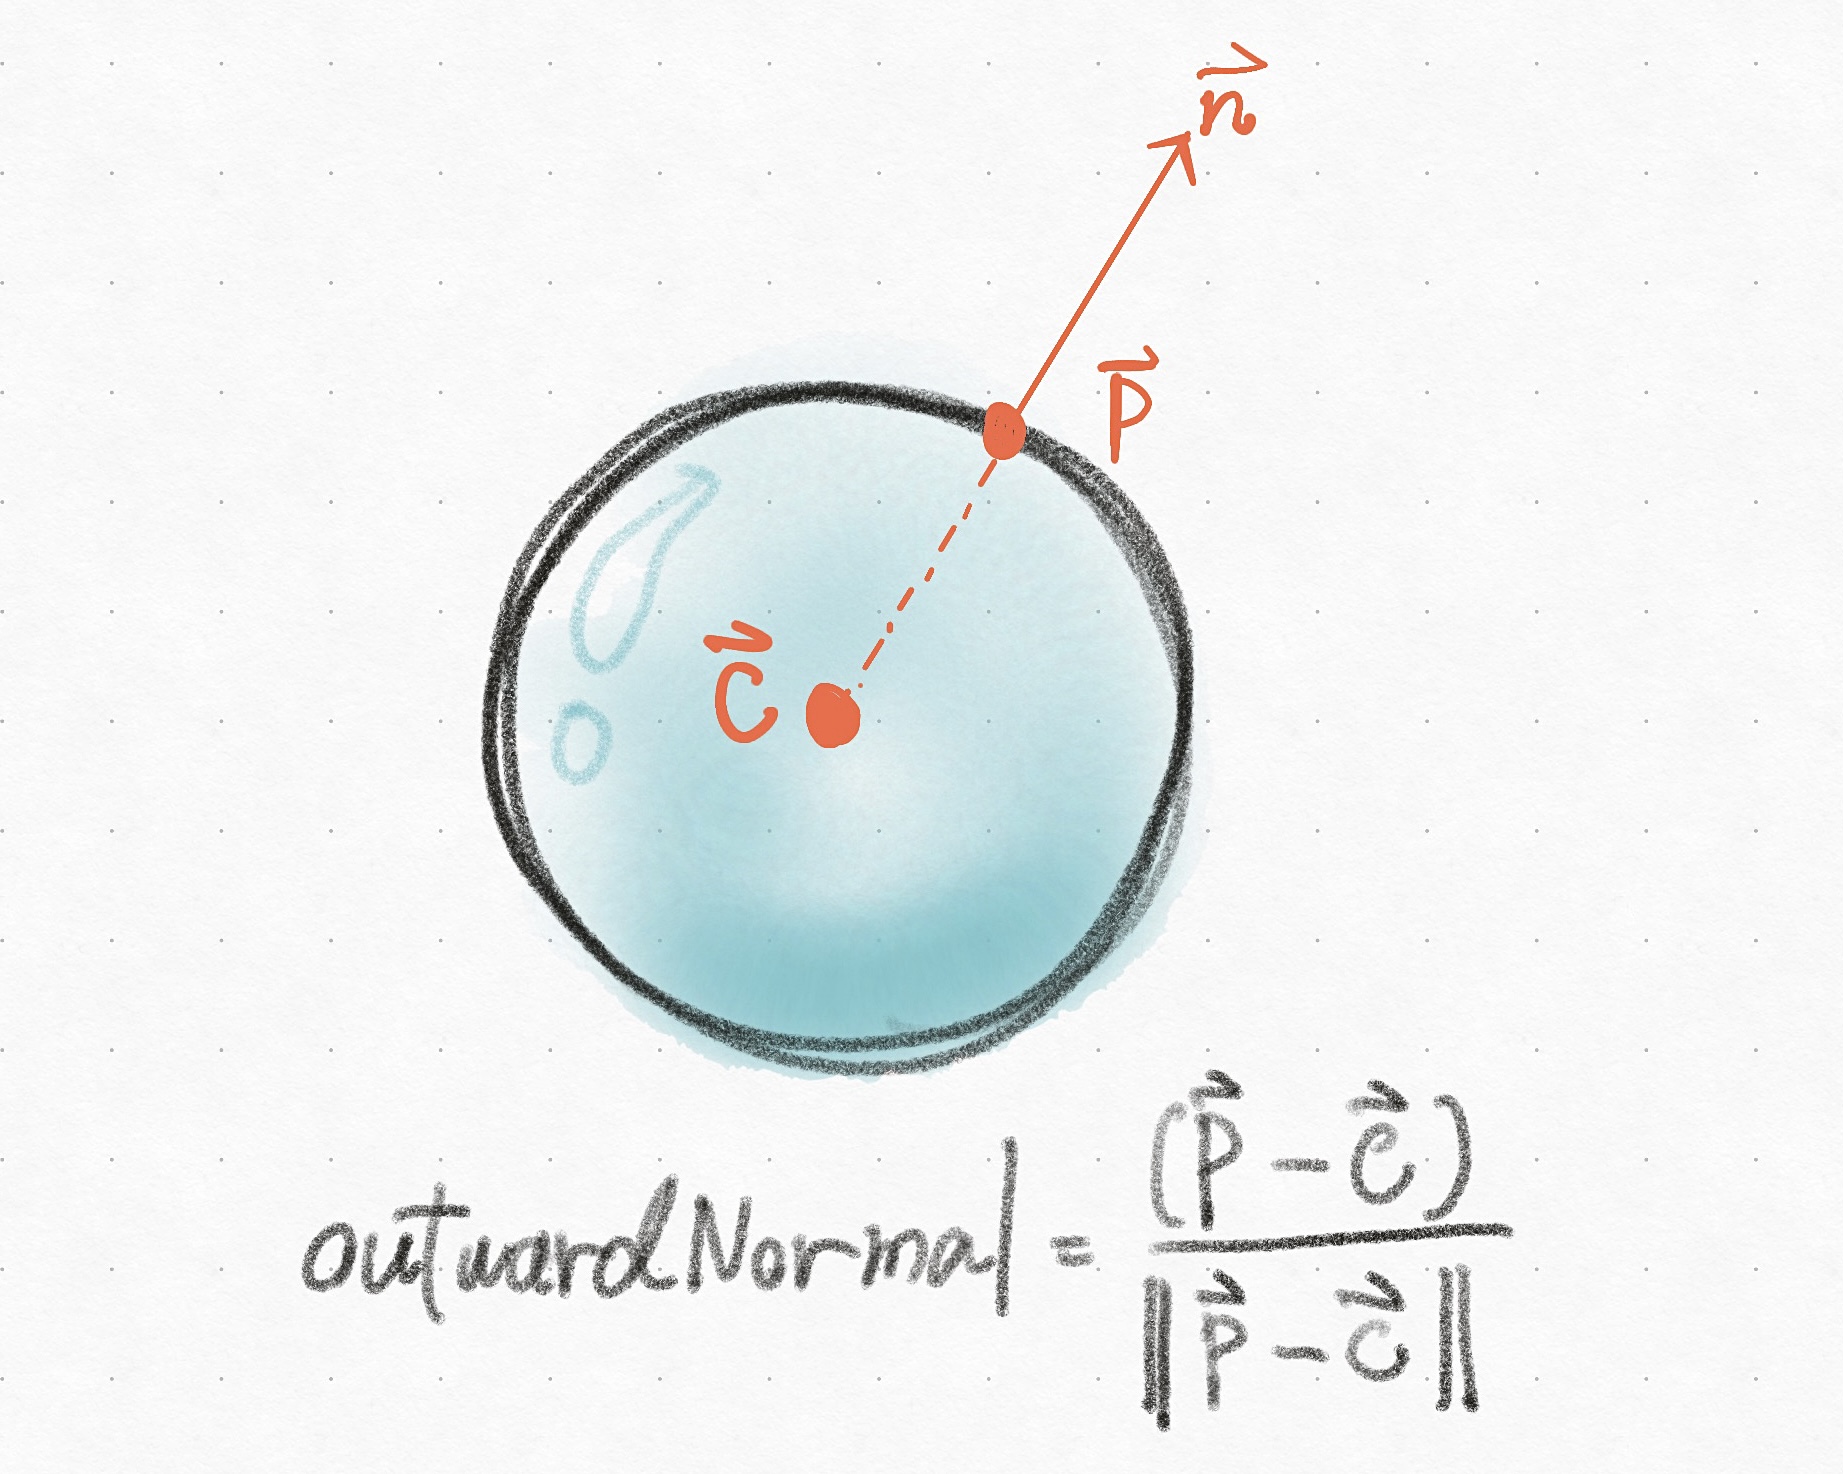 n⃗
P⃗
C⃗
outwardNormal = (P⃗ - C⃗) / ‖P⃗ - C⃗‖